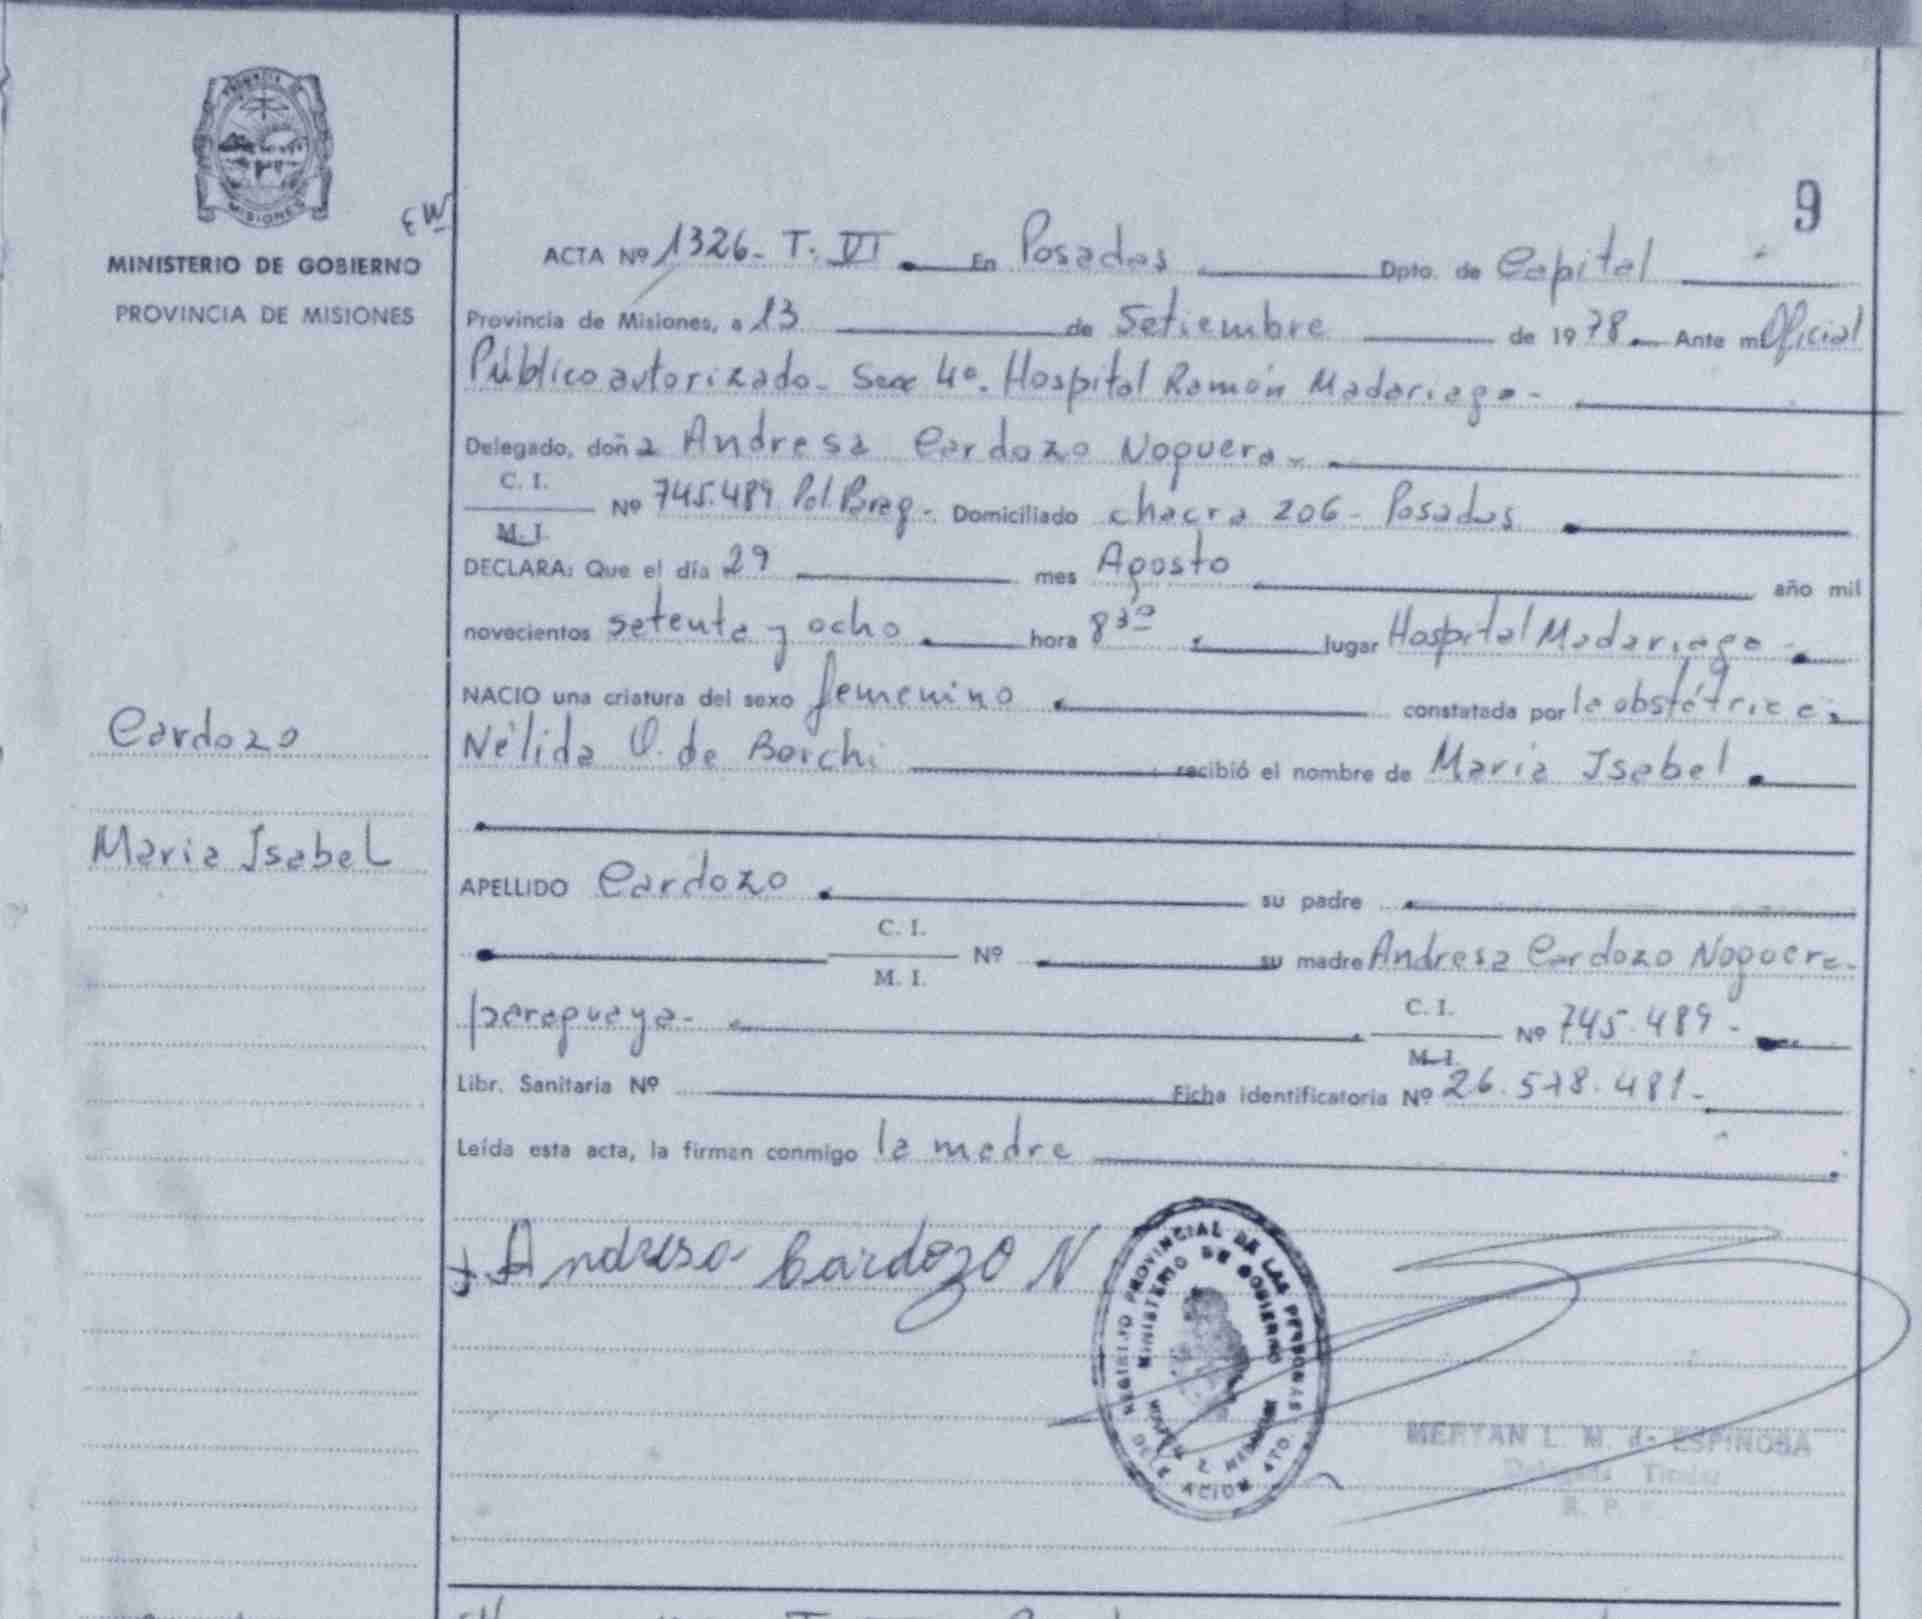 PROVINCIA DE
MISIONES
EW
MINISTERIO DE GOBIERNO
PROVINCIA DE MISIONES
9
ACTA Nº 1326- T. VI En Posadas Dpto. de Capital
Provincia de Misiones, a 13 de Setiembre de 1978 Ante mi Oficial
Público autorizado- Secc 4º. Hospital Ramón Madariaga-
Delegado, doña Andresa Cardozo Noguera-
C. I.
M. I.
Nº 745.489 Pol. Parag- Domiciliado chacra 206- Posadas
DECLARA: Que el día 29 mes Agosto año mil
novecientos setenta y ocho hora 8 30 lugar Hospital Madariaga-
NACIO una criatura del sexo femenino constatada por la obstétrica
Nélida O. de Borchi recibió el nombre de María Isabel
Cardozo
Maria Isabel
APELLIDO Cardozo su padre
C. I.
M. I.
Nº su madre Andresa Cardozo Noguera-
paraguaya-
C. I.
M. I.
Nº 745.489-
Libr. Sanitaria Nº Ficha identificatoria Nº 26.578.481-
Leída esta acta, la firman conmigo la madre
Andresa Cardozo N
REGISTRO PROVINCIAL DE LAS PERSONAS
MINISTERIO DE GOBIERNO
DELEGACION 4TO.
MERYAN L. M. de ESPINOSA
Delegada Titular
R. P.